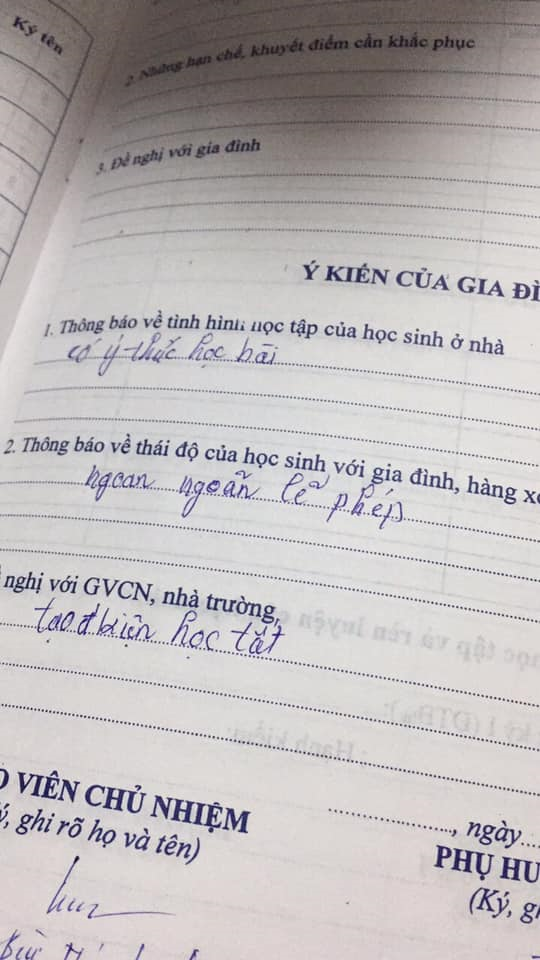 Ký tên
2. Những hạn chế, khuyết điểm cần khắc phục
3. Đề nghị với gia đình
Ý KIẾN CỦA GIA ĐÌ
1. Thông báo về tình hình học tập của học sinh ở nhà
có ý thức học bài
2. Thông báo về thái độ của học sinh với gia đình, hàng xó
ngoan ngoãn lễ phép
nghị với GVCN, nhà trường
tạo đ học tốt
O VIÊN CHỦ NHIỆM
ý, ghi rõ họ và tên)
, ngày
PHỤ HU
(Ký, gh